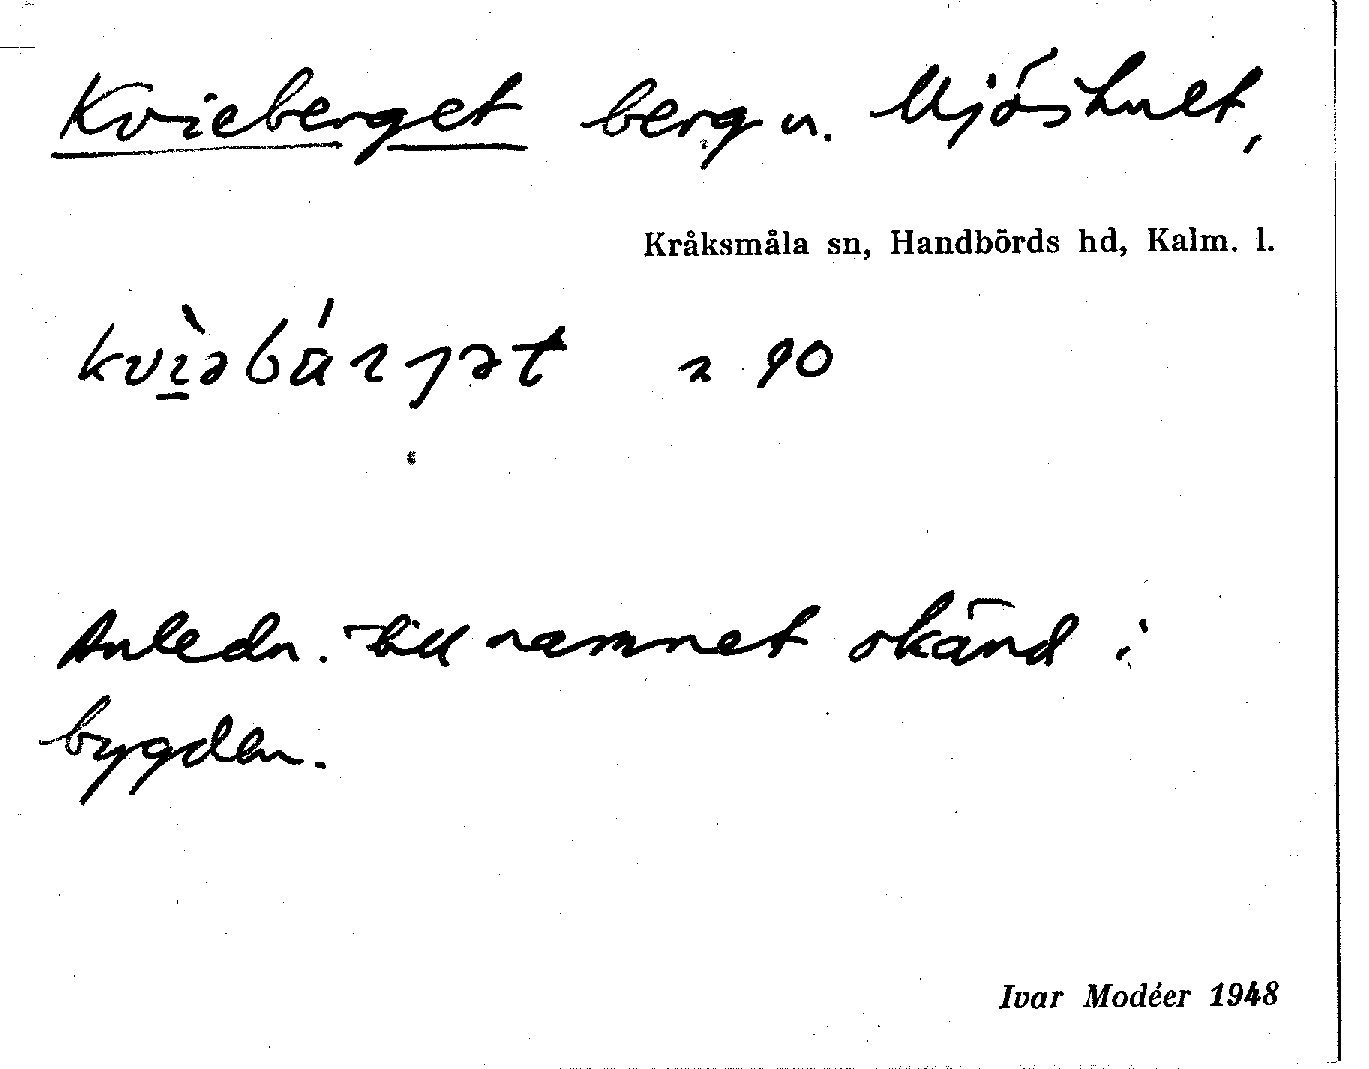 Kvieberget berg n. Mjöshult,
Kråksmåla sn, Handbörds hd, Kalm. l.
90
Anledn. till namnet okänd i
bygden.
Ivar Modéer 1948